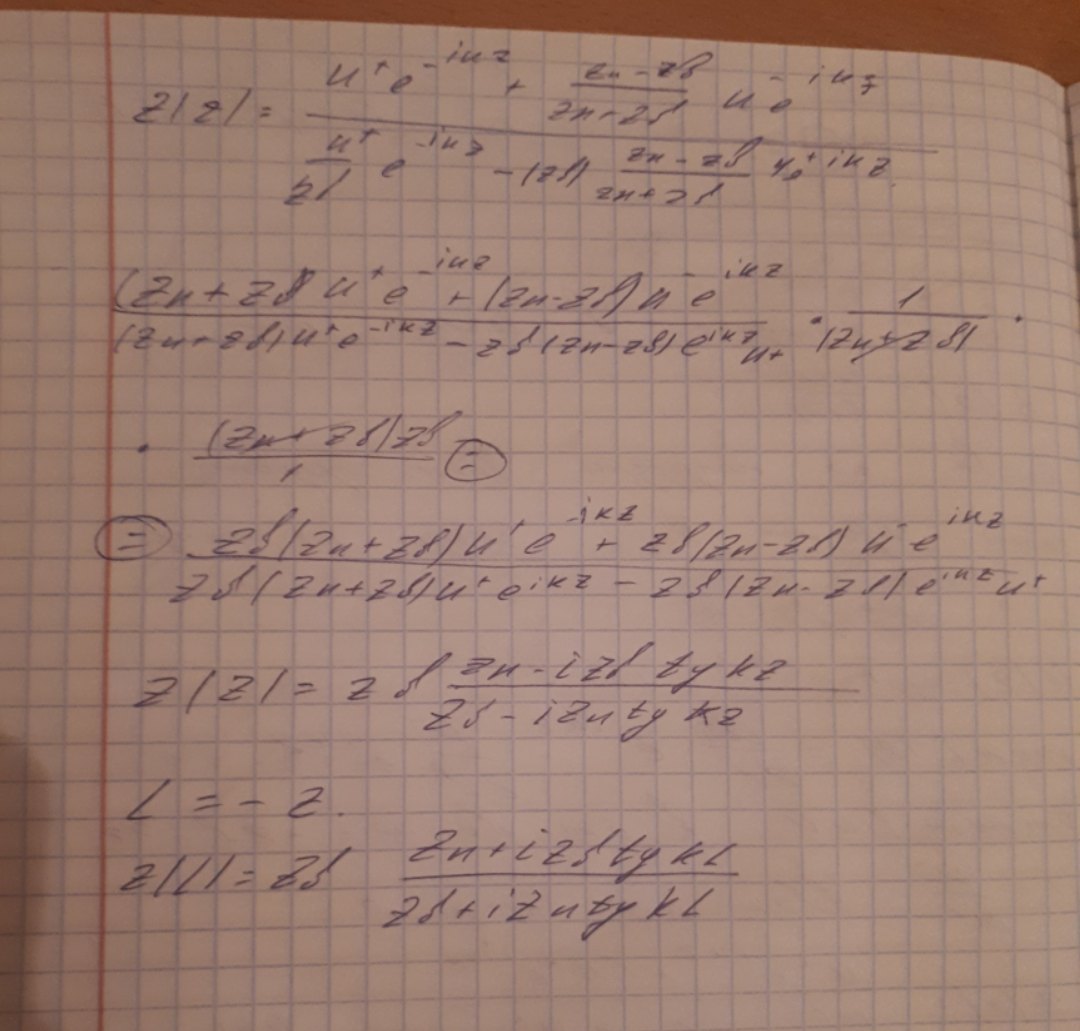 z(z) = \frac{u^+ e^{-ikz} + \frac{zн - zв}{zн + zв} u^- e^{ikz}}{\frac{u^+}{zв} e^{-ikz} - (zв) \frac{zн - zв}{zн + zв} u^+ e^{ikz}}
\frac{(zн + zв) u^+ e^{-ikz} + (zн - zв) u^- e^{ikz}}{(zн + zв) u^+ e^{-ikz} - zв (zн - zв) e^{ikz} u^+} \cdot \frac{1}{(zн + zв)} \cdot
\cdot \frac{(zн + zв) zв}{1} =
= \frac{zв (zн + zв) u^+ e^{-ikz} + zв (zн - zв) u^- e^{ikz}}{zв (zн + zв) u^+ e^{ikz} - zв (zн - zв) e^{ikz} u^+}
z(z) = zв \frac{zн - i zв tg kz}{zв - i zн tg kz}
L = - z.
z(L) = zв \frac{zн + i zв tg kL}{zв + i zн tg kL}